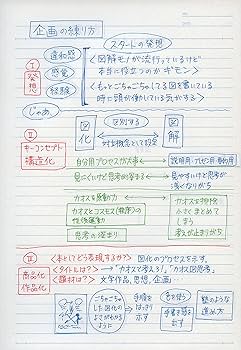 企画の練り方
① 発想
違和感
感覚
経験
スタートの発想
<図解モノが流行っているけど
本当に役立つのかギモン>
<もっとごちゃごちゃしてる図を書いている
時に頭が働いている気がする>
じゃあ
Ⅱ
キーコンセプト
構造化
図化
区別する
対立概念として設定
図解
自分用プロセスが大事
説明用・プレゼン用
見にくいけど思考的深まる
見やすいけど思考が
浅くなりがち
カオスを原動力
カオスとコスモス(秩序)の
往復運動
思考の深まり
カオスを排除
小さくまとめて
しまう
考えが止まりがち
Ⅲ
商品化
作品化
<本としてどう表現するか?> 図化のプロセスを示す。
<タイトルは?> →「カオスで考える!」「カオス図思考」
<題材は?> 文学作品、思想、企画…
ごちゃごちゃ
した図化の
よさがわかる
ように
手順を
はっきり
示す
塾のような
進め方